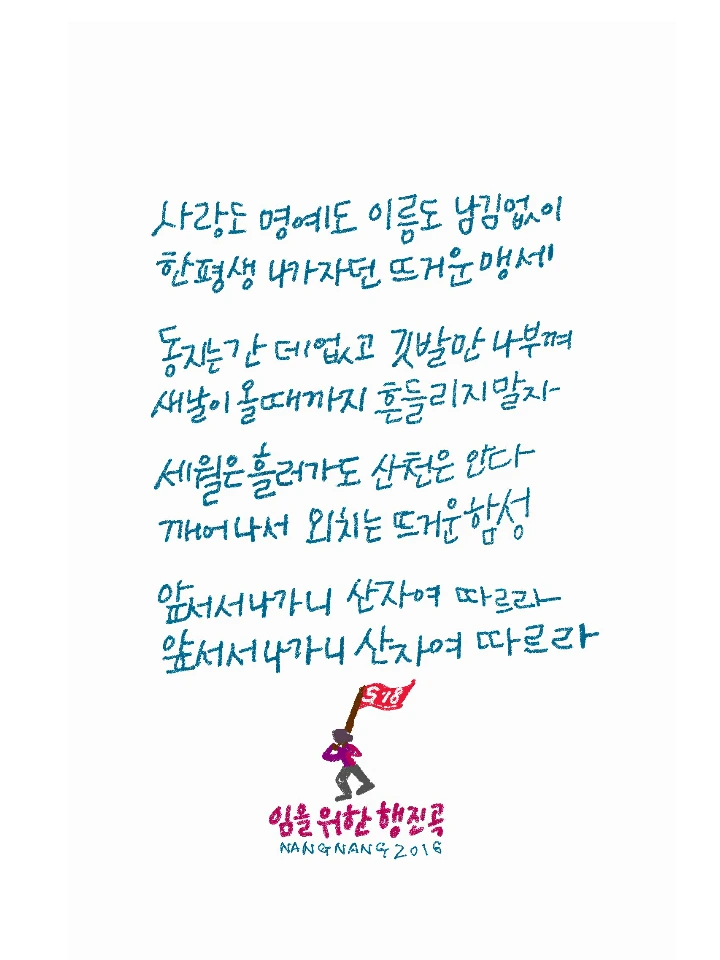 사랑도 명예도 이름도 남김없이
한평생 나가자던 뜨거운 맹세
동지는 간 데 없고 깃발만 나부껴
새날이 올때까지 흔들리지 말자
세월은 흘러가도 산천은 안다
깨어나서 외치는 뜨거운 함성
앞서서 나가니 산자여 따르라
앞서서 나가니 산자여 따르라
5 18
임을 위한 행진곡
NANGNANG 2016